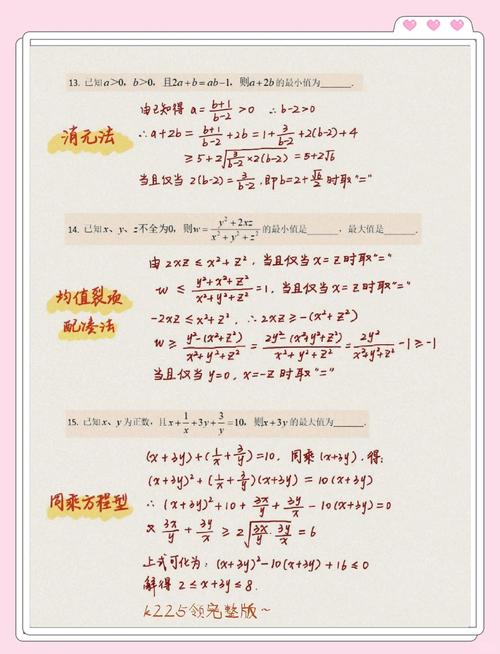 13. 已知a>0，b>0，且2a+b=ab-1，则a+2b的最小值为______.
消元法
由已知得 a=\frac{b+1}{b-2}>0 ∴b-2>0
∴a+2b=\frac{b+1}{b-2}+2b=1+\frac{3}{b-2}+2(b-2)+4
≥5+2\sqrt{\frac{3}{b-2}×2(b-2)}=5+2√6
当且仅当 2(b-2)=\frac{3}{b-2},即b=2+\frac{√6}{2}时取"="
14. 已知x、y、z不全为0，则w=\frac{y²+2xz}{x²+y²+z²}的最小值是______，最大值是______.
均值裂项
配凑法
由 2xz≤x²+z²，当且仅当x=z时取"="
w≤\frac{y²+x²+z²}{x²+y²+z²}=1，当且仅当x=z时取"="
-2xz≤x²+z²，∴2xz≥-(x²+z²)
w≥\frac{y²-(x²+z²)}{x²+y²+z²}=\frac{2y²-(x²+y²+z²)}{x²+y²+z²}=\frac{2y²}{x²+y²+z²}-1≥-1
当且仅当y=0，x=-z时取"="
15. 已知x、y为正数，且x+\frac{1}{x}+3y+\frac{3}{y}=10，则x+3y的最大值为______.
同乘方程型
(x+3y)+(\frac{1}{x}+\frac{3}{y})=10，同乘(x+3y)，得：
(x+3y)²+(\frac{1}{x}+\frac{3}{y})(x+3y)=10(x+3y)
∴(x+3y)²+10+\frac{3x}{y}+\frac{3y}{x}-10(x+3y)=0
又\frac{3x}{y}+\frac{3y}{x}≥2\sqrt{\frac{3x}{y}·\frac{3y}{x}}=6
上式可化为：(x+3y)²-10(x+3y)+16≤0
解得 2≤x+3y≤8.
k225领完整版~